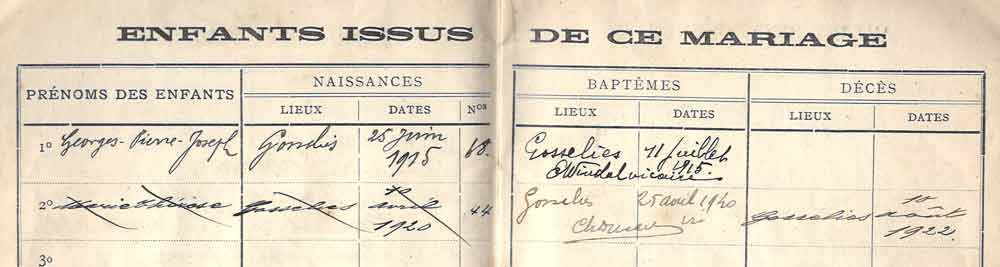 ENFANTS ISSUS DE CE MARIAGE
PRÉNOMS DES ENFANTS
NAISSANCES
BAPTÊMES
DÉCÈS
LIEUX
DATES
Nos
LIEUX
DATES
LIEUX
DATES
1o Georges-Pierre-Joseph
25 Juin
1915
68.
Gosselies 11 juillet
1915.
2o Marie Thérèse
Gosselies
10
avril
1920
44
Gosselies 25 avril 1920
Gosselies
10
août
1922.
3o